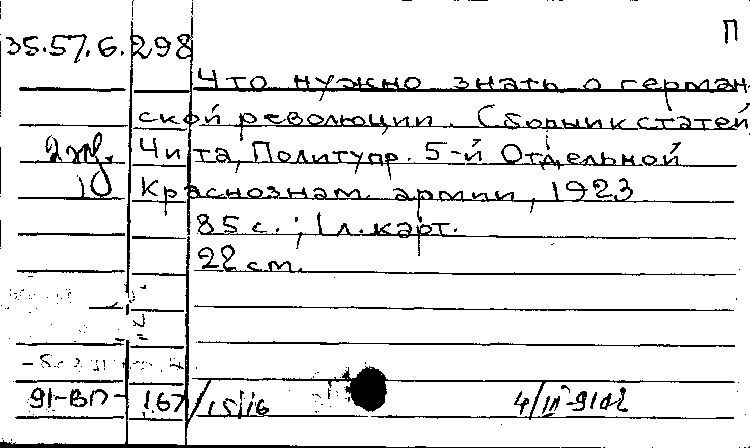 П
35.57.6.298
Что нужно знать о герман-
ской революции. Сборник статей
2 экз. Чита, Политупр. 5-й Отдельной
Краснознам. армии, 1923
85 с.; 1 л. карт.
22 см.
91-ВП- 167/15116